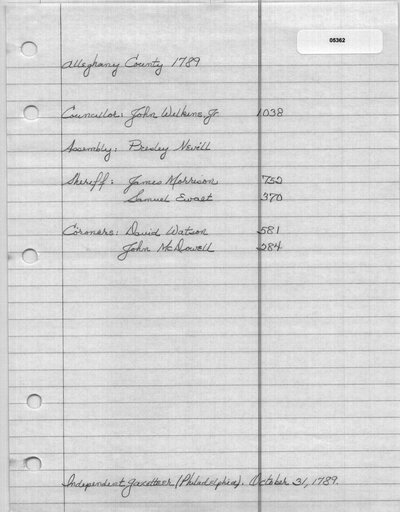 05362
Alleghany County 1789
Councillor: John Wilkins Jr 1038
Assembly: Presley Nevill
Sheriff: James Morrison 752
Samuel Ewalt 370
Coroners: David Watson 581
John McDowell 284
Independent Gazetteer (Philadelphia). October 31, 1789.